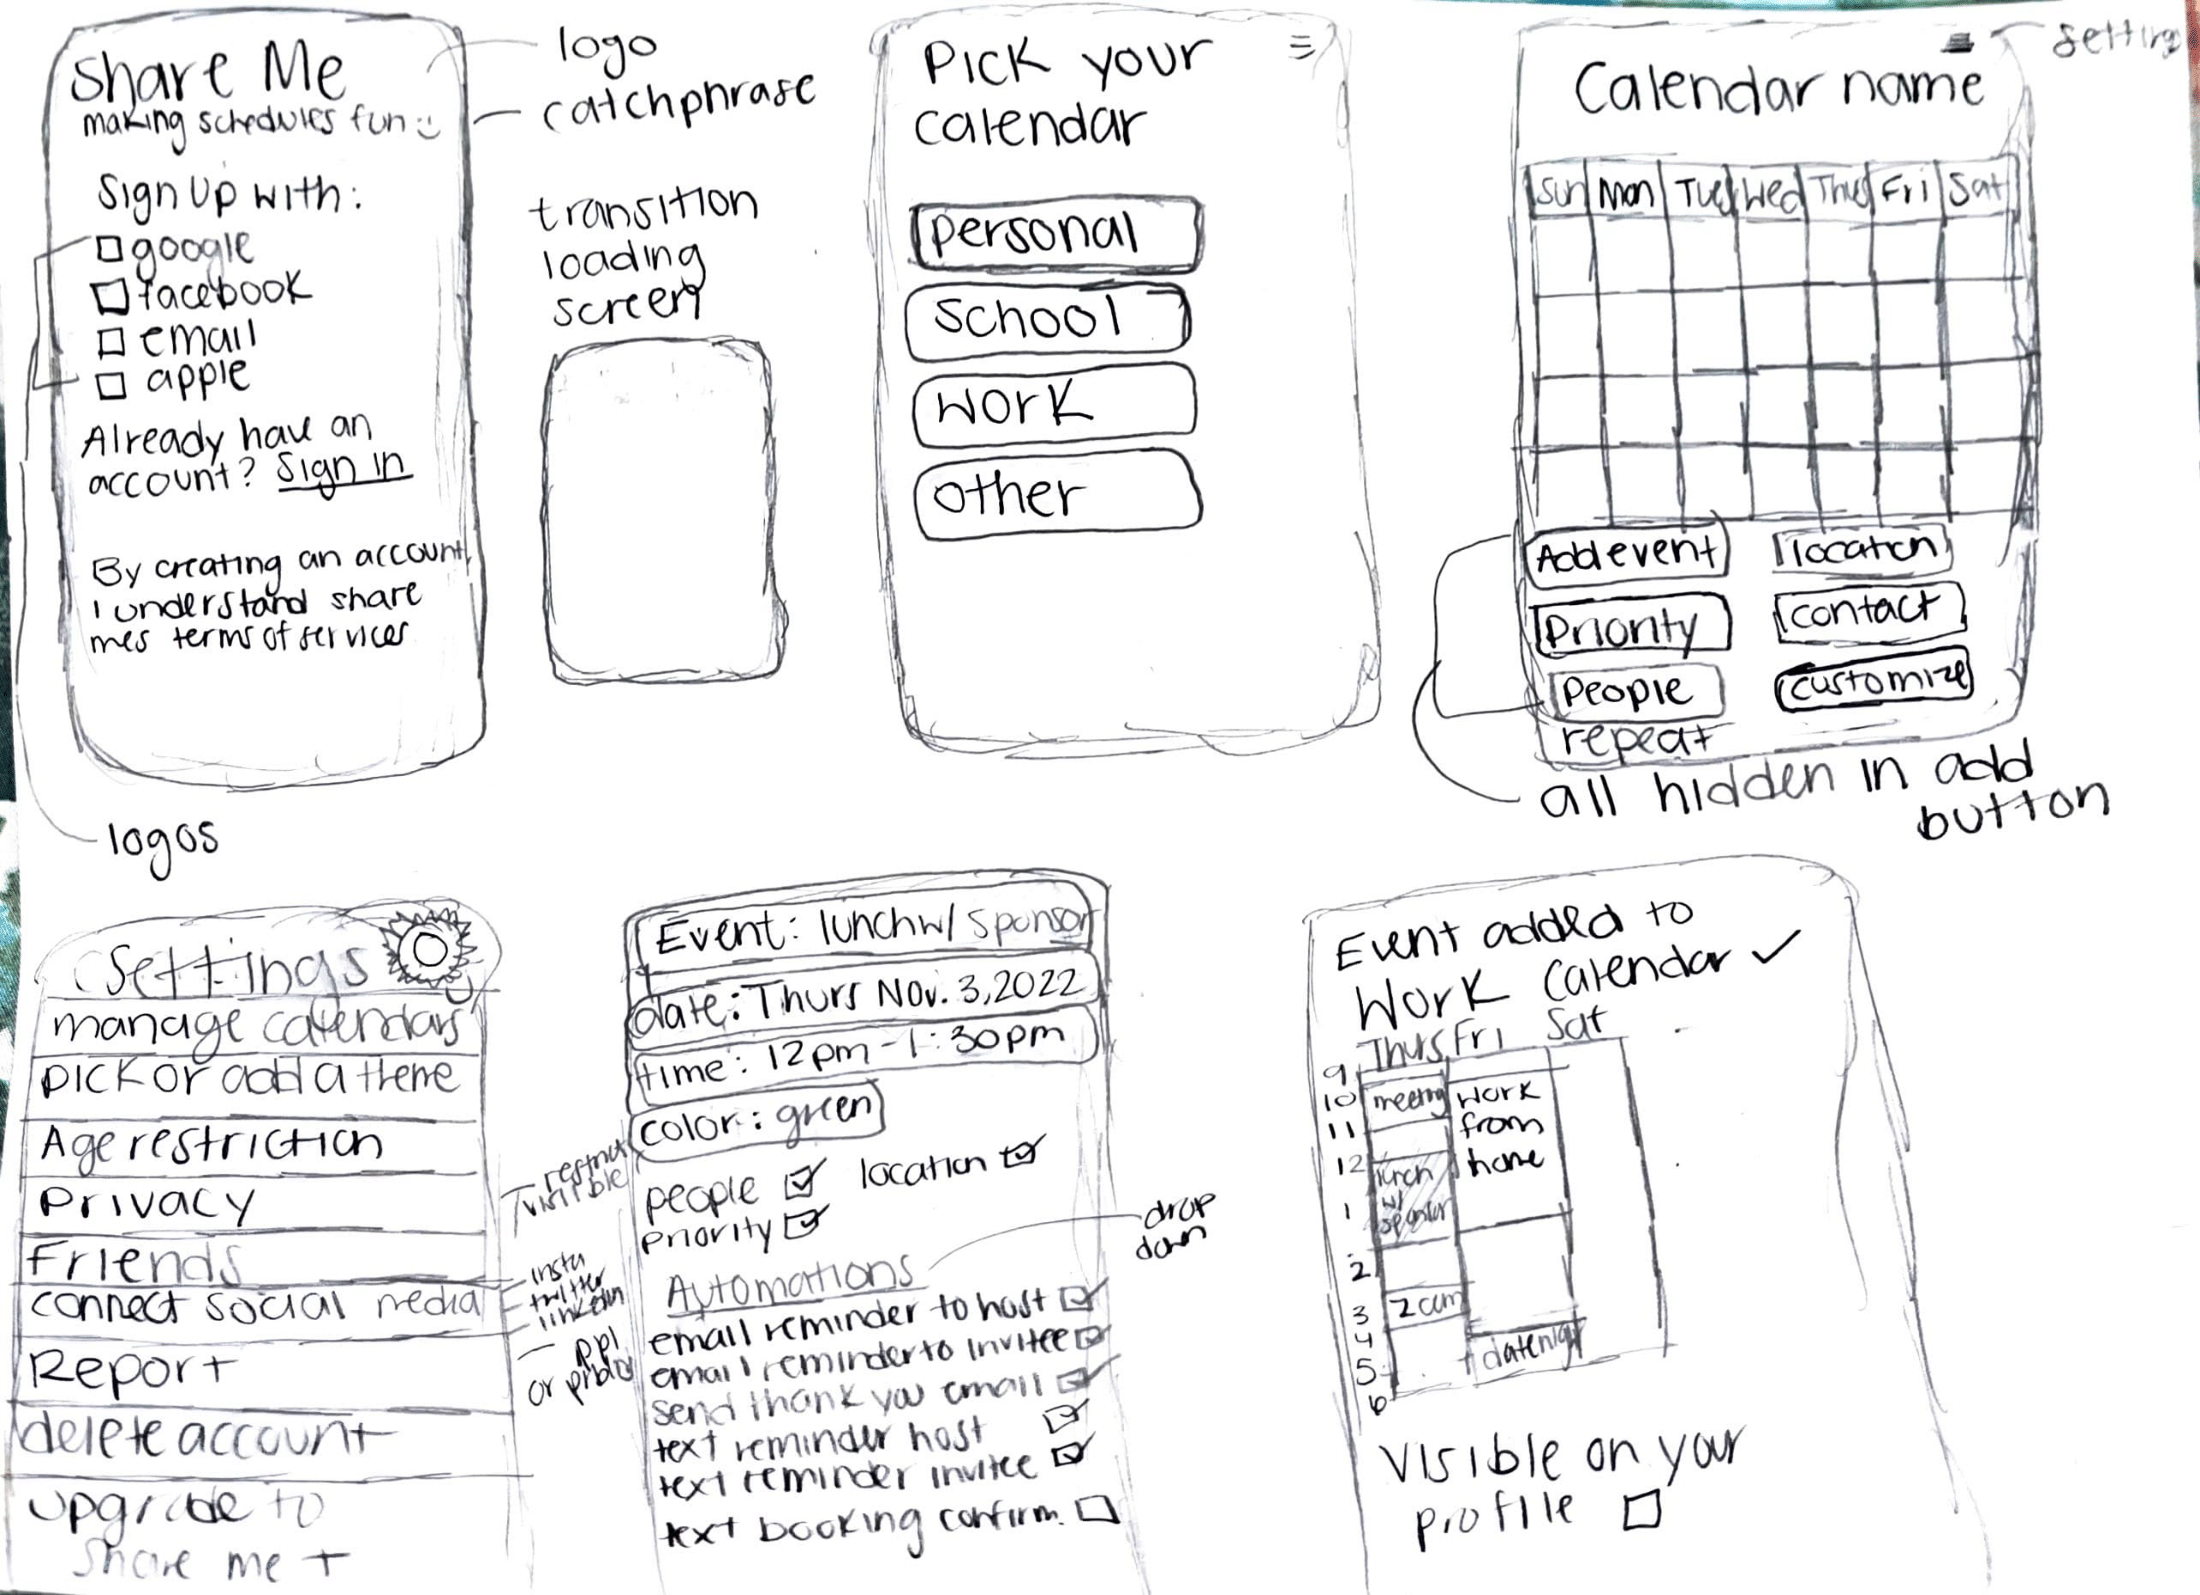 Share Me
making schedules fun
logo
catchphrase
Sign Up with:
google
facebook
email
apple
Already have an
account? Sign in
By creating an account
I understand share
mes terms of services
logos
transition
loading
screen
Pick your
calendar
personal
school
work
other
setting
Calendar name
Sun Mon Tues Wed Thus Fri Sat
Add event
location
Priority
contact
People
customize
repeat
all hidden in add
button
Settings
manage calendars
pick or add a theme
Age restriction
privacy
restrict
visible
Friends
connect social media
insta
twitter
linkedin
Report
ppl
or
delete account
upgrade to
share me +
Event: lunch w/ sponsor
date: Thurs Nov. 3, 2022
time: 12pm - 1:30pm
color: green
people
location
priority
Automations
drop
down
email reminder to host
email reminder to invitee
send thank you email
text reminder host
text reminder invitee
text booking confirm.
Event added to
Work Calendar
Thurs Fri Sat
9
10
11
12
1
2
3
4
5
6
meeting
work
from
home
lunch
w/
sponsor
zoom
datenight
Visible on your
profile